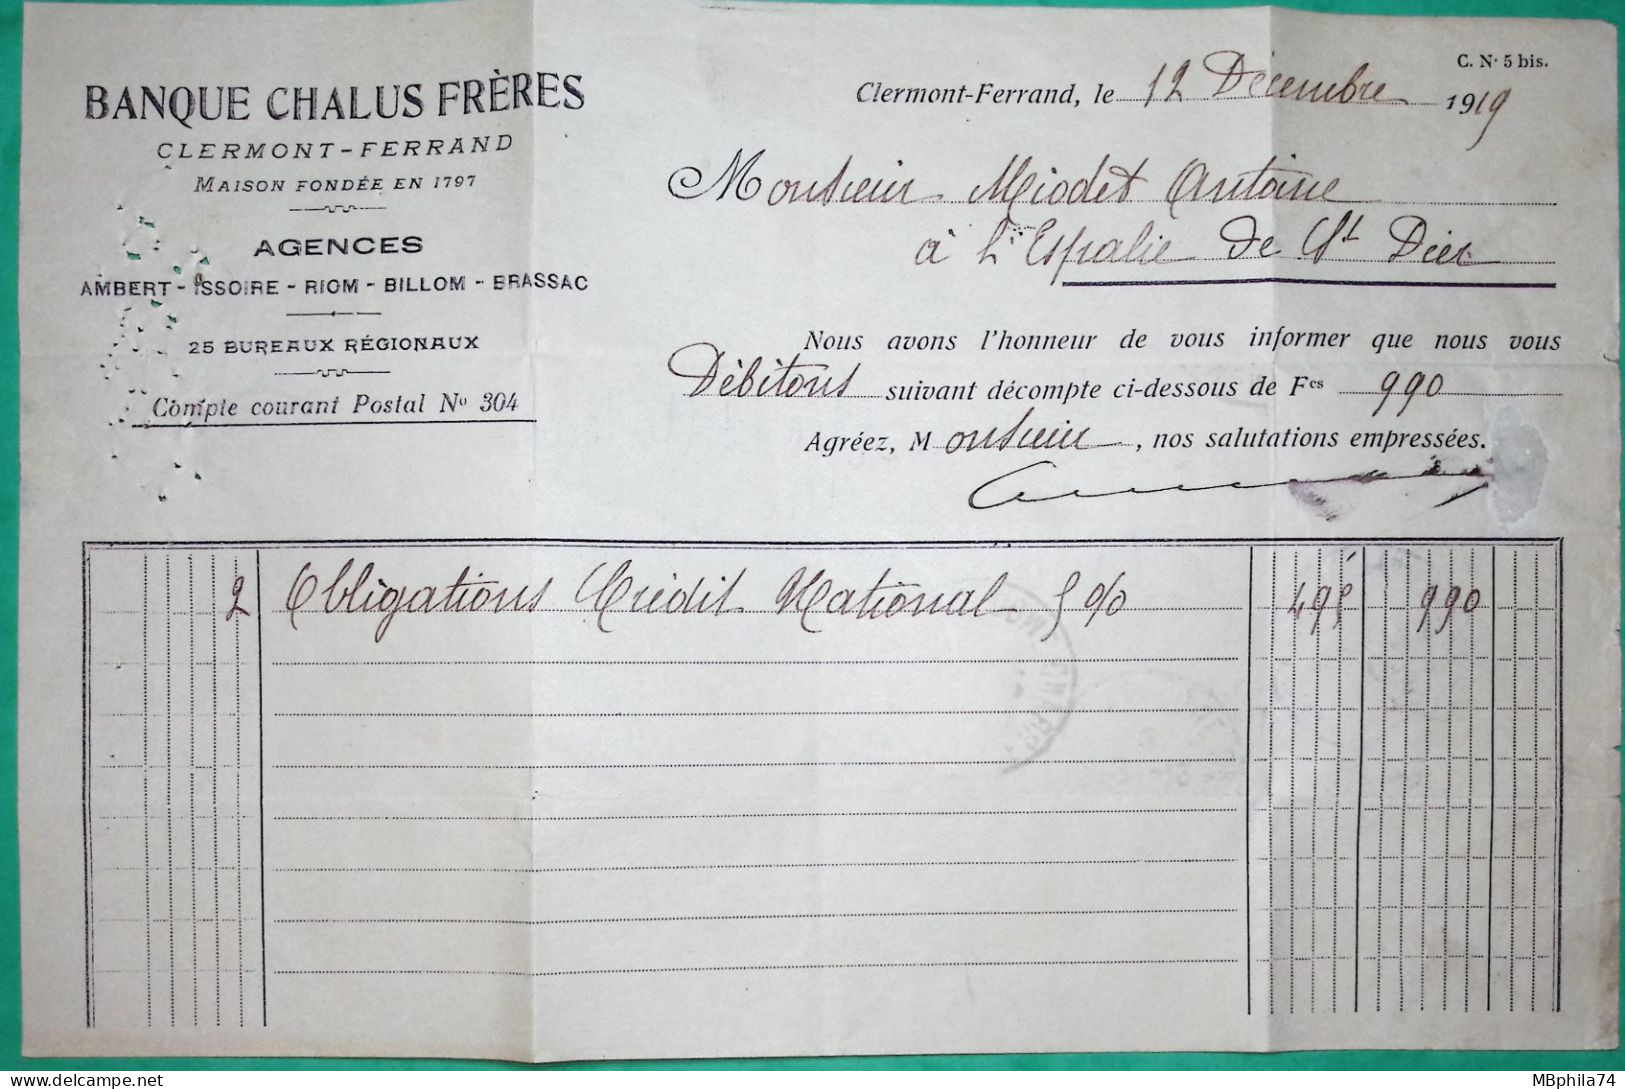 C. N° 5 bis.
BANQUE CHALUS FRÈRES
CLERMONT-FERRAND
MAISON FONDÉE EN 1797
AGENCES
AMBERT - ISSOIRE - RIOM - BILLOM - BRASSAC
25 BUREAUX RÉGIONAUX
Compte courant Postal N° 304
Clermont-Ferrand, le 12 Décembre 1919
Monsieur Miodet Antoine
à l'Espalie de St Dier
Nous avons l'honneur de vous informer que nous vous
Débitons suivant décompte ci-dessous de Fcs 990
Agréez, Monsieur, nos salutations empressées.
2 Obligations Crédit National 5 % 495 990
delcampe.net
MBphila74